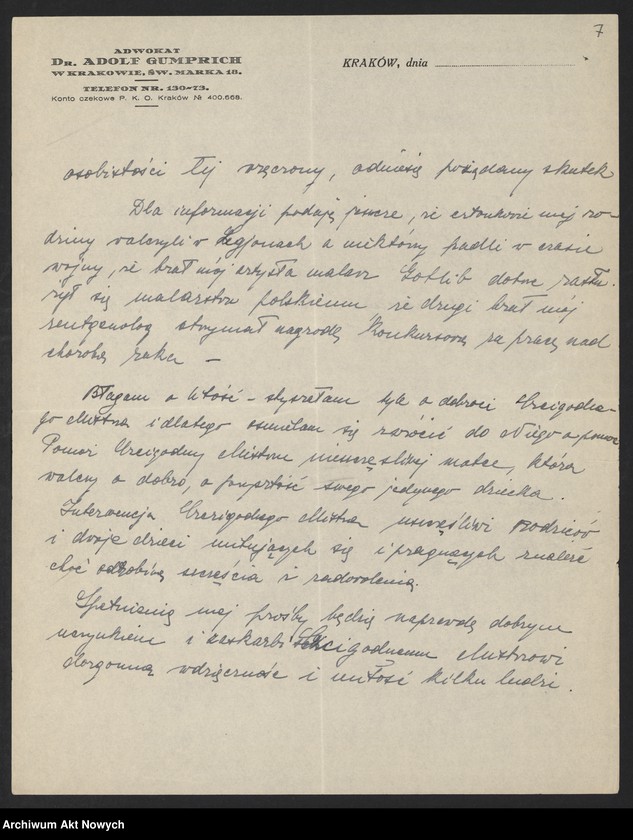 7
ADWOKAT
DR. ADOLF GUMPRICH
W KRAKOWIE, ŚW. MARKA 18.
TELEFON NR. 130-73.
Konto czekowe P. K. O. Kraków № 400.668.
KRAKÓW, dnia
osobistości tej wręczony, odniesie pożądany skutek
Dla informacji podaję jeszcze, że członkowie mej ro-
dziny walczyli w Legjonach a niektórzy padli w czasie
wojny, że brat mój artysta malarz Gotlib dobrze zasłu-
żył się malarstwu polskiemu że drugi brat mój
rentgenolog otrzymał nagrodę konkursową za pracę nad
chorobą raka —
Błagam o litość – słyszałam tyle o dobroci Czcigodne-
go Mistrza i dlatego ośmielam się zwrócić do Niego o pomoc
Pomóż Czcigodny Mistrzu nieszczęśliwej matce, która
walczy o dobro, o przyszłość swego jedynego dziecka.
Interwencja Czcigodnego Mistrza uszczęśliwi rodziców
i dwoje dzieci miłujących się i pragnących znaleźć
choć odrobinę szczęścia i zadowolenia.
Spełnienie mej prośby będzie naprawdę dobrym
uczynkiem i zaskarbi Czcigodnemu Mistrzowi
dozgonną wdzięczność i miłość kilku ludzi.
Archiwum Akt Nowych